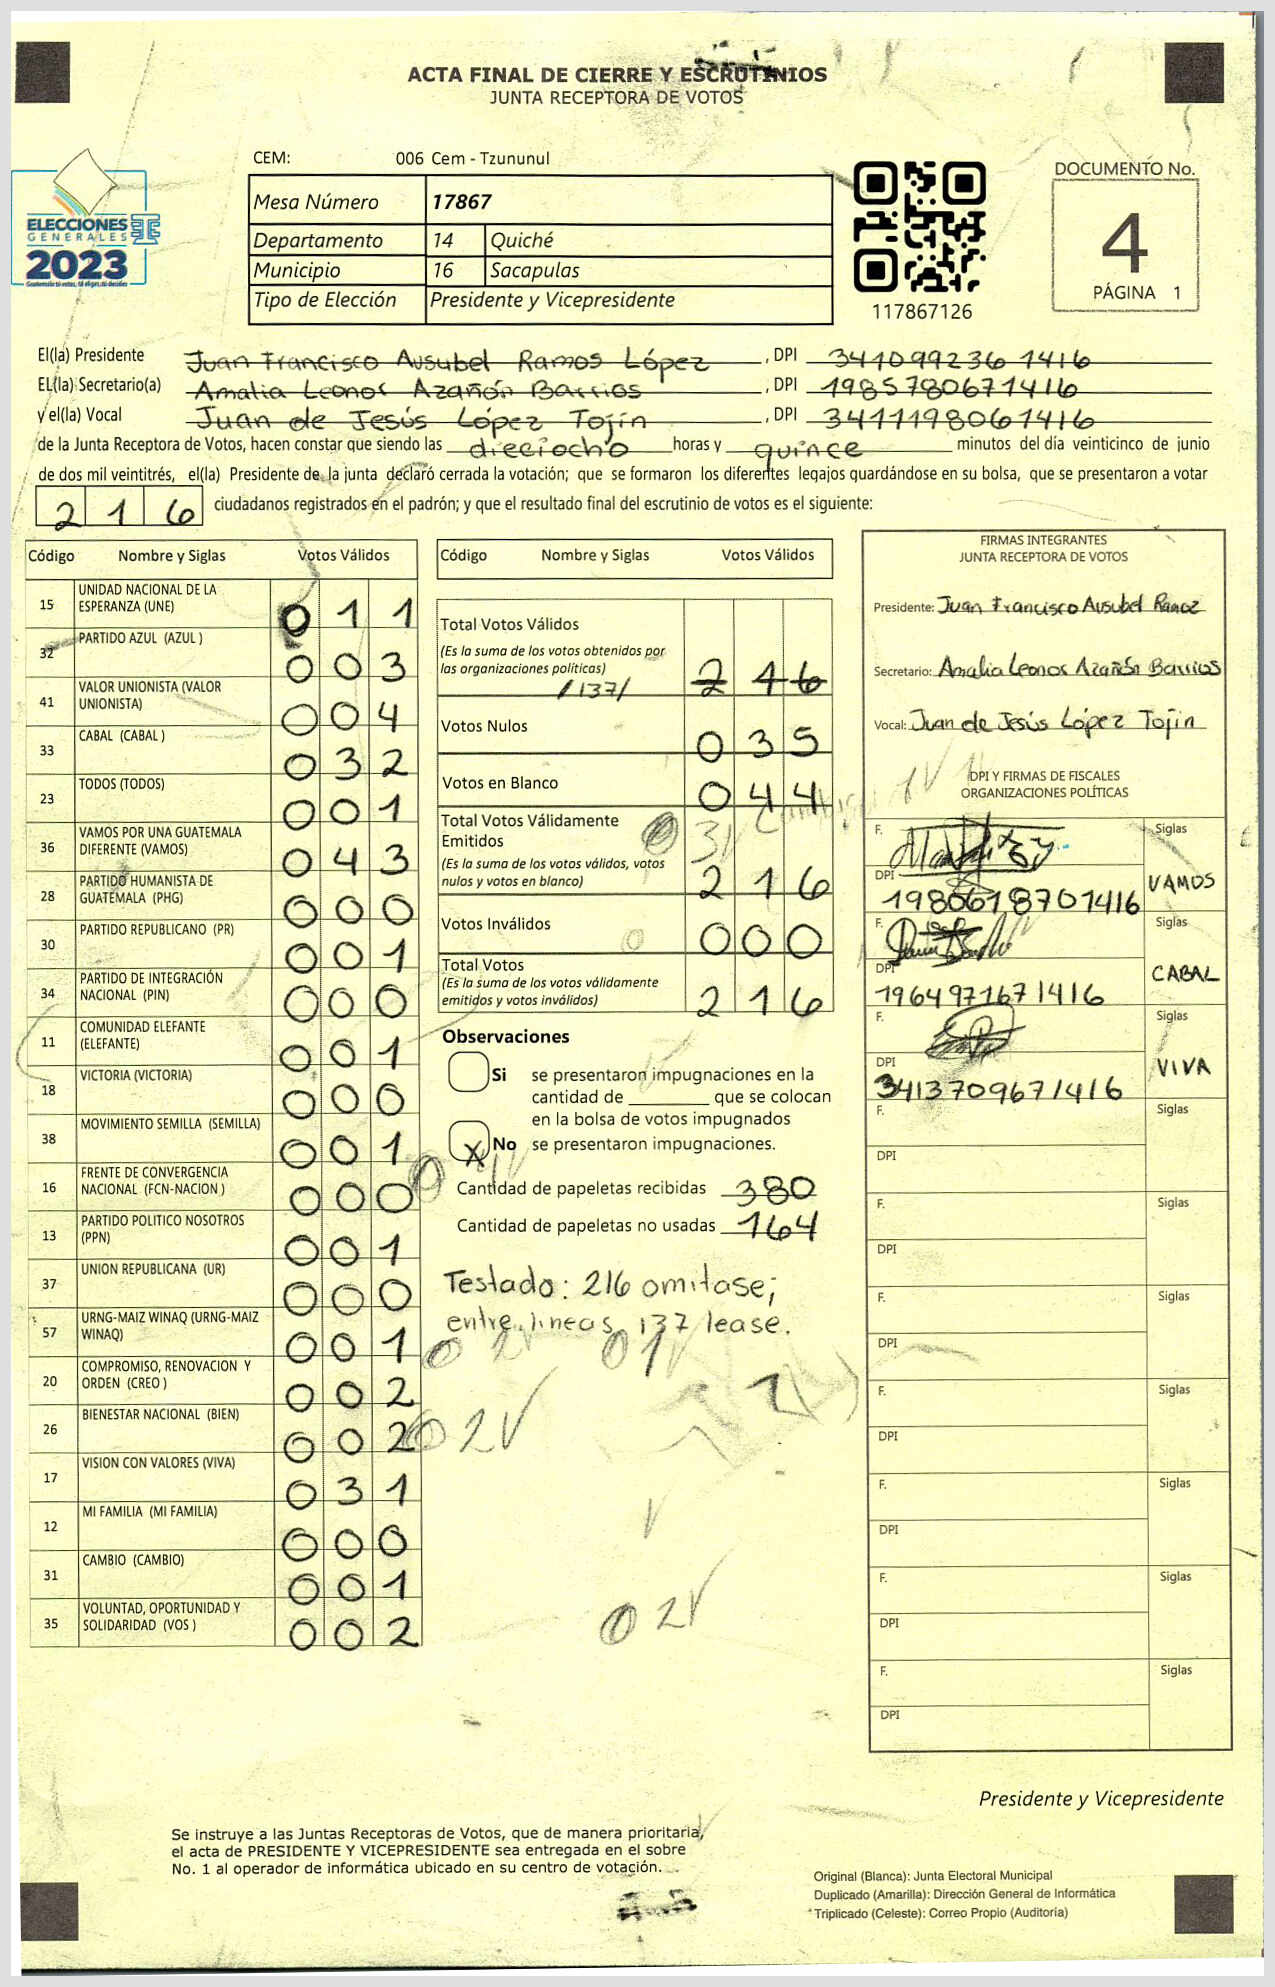 ACTA FINAL DE CIERRE Y ESCRUTINIOS
JUNTA RECEPTORA DE VOTOS
CEM: 006 Cem - Tzununul
ELECCIONES
GENERALES
2023
Mesa Número 17867
Departamento 14 Quiché
Municipio 16 Sacapulas
Tipo de Elección Presidente y Vicepresidente
117867126
DOCUMENTO No.
4
PÁGINA 1
El(la) Presidente Juan Francisco Ausubel Ramos López , DPI 341099236 1416
EL(la) Secretario(a) Amalia Leonor Azañón Barrios , DPI 1985780671416
y el(la) Vocal Juan de Jesús López Tojín , DPI 3411198061416
de la Junta Receptora de Votos, hacen constar que siendo las dieciocho horas y quince minutos del día veinticinco de junio
de dos mil veintitrés, el(la) Presidente de la junta declaró cerrada la votación; que se formaron los diferentes legajos guardándose en su bolsa, que se presentaron a votar
216 ciudadanos registrados en el padrón; y que el resultado final del escrutinio de votos es el siguiente:
Código Nombre y Siglas Votos Válidos
15 UNIDAD NACIONAL DE LA ESPERANZA (UNE) 011
32 PARTIDO AZUL (AZUL ) 003
41 VALOR UNIONISTA (VALOR UNIONISTA) 004
33 CABAL (CABAL ) 032
23 TODOS (TODOS) 001
36 VAMOS POR UNA GUATEMALA DIFERENTE (VAMOS) 043
28 PARTIDO HUMANISTA DE GUATEMALA (PHG) 000
30 PARTIDO REPUBLICANO (PR) 001
34 PARTIDO DE INTEGRACIÓN NACIONAL (PIN) 000
11 COMUNIDAD ELEFANTE (ELEFANTE) 001
18 VICTORIA (VICTORIA) 000
38 MOVIMIENTO SEMILLA (SEMILLA) 001
16 FRENTE DE CONVERGENCIA NACIONAL (FCN-NACION ) 000
13 PARTIDO POLITICO NOSOTROS (PPN) 001
37 UNION REPUBLICANA (UR) 000
57 URNG-MAIZ WINAQ (URNG-MAIZ WINAQ) 001
20 COMPROMISO, RENOVACION Y ORDEN (CREO ) 002
26 BIENESTAR NACIONAL (BIEN) 002
17 VISION CON VALORES (VIVA) 031
12 MI FAMILIA (MI FAMILIA) 000
31 CAMBIO (CAMBIO) 001
35 VOLUNTAD, OPORTUNIDAD Y SOLIDARIDAD (VOS ) 002
Código Nombre y Siglas Votos Válidos
Total Votos Válidos
(Es la suma de los votos obtenidos por
las organizaciones políticas) 216
/137/
Votos Nulos 035
Votos en Blanco 044
Total Votos Válidamente
Emitidos
(Es la suma de los votos válidos, votos
nulos y votos en blanco) 216
Votos Inválidos 000
Total Votos
(Es la suma de los votos válidamente
emitidos y votos inválidos) 216
Observaciones
Si se presentaron impugnaciones en la
cantidad de ________ que se colocan
en la bolsa de votos impugnados
X No se presentaron impugnaciones.
Cantidad de papeletas recibidas 380
Cantidad de papeletas no usadas 164
Testado: 216 omitase;
entre lineas 137 lease.
0 2V
01V
02V
0 2V
FIRMAS INTEGRANTES
JUNTA RECEPTORA DE VOTOS
Presidente: Juan Francisco Ausubel Ramoz
Secretario: Amalia Leonor Azañón Barrios
Vocal: Juan de Jesús López Tojin
DPI Y FIRMAS DE FISCALES
ORGANIZACIONES POLÍTICAS
F. Siglas
DPI 1980618701416 VAMOS
F. Siglas
DPI 1964971671416 CABAL
F. Siglas
DPI 3413709671416 VIVA
F. Siglas
DPI
F. Siglas
DPI
F. Siglas
DPI
F. Siglas
DPI
F. Siglas
DPI
F. Siglas
DPI
F. Siglas
DPI
Presidente y Vicepresidente
Se instruye a las Juntas Receptoras de Votos, que de manera prioritaria,
el acta de PRESIDENTE Y VICEPRESIDENTE sea entregada en el sobre
No. 1 al operador de informática ubicado en su centro de votación.
Original (Blanca): Junta Electoral Municipal
Duplicado (Amarilla): Dirección General de Informática
Triplicado (Celeste): Correo Propio (Auditoría)